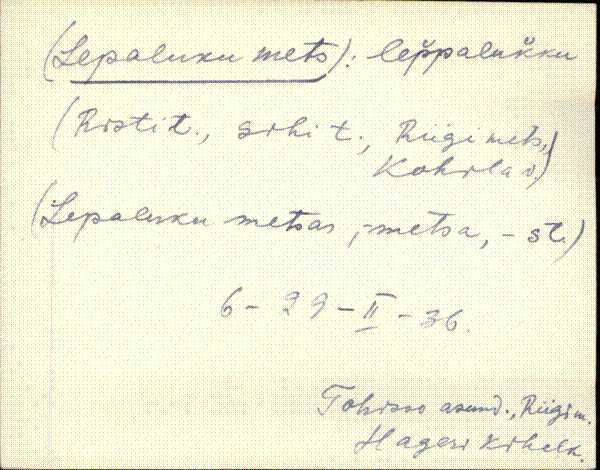 (Lepaluku mets): lep̆palŭkku
(Ristit., sihi t., Riigi mets,
Kohila v.)
(Lepaluku metsas, -metsa, -st.)
6 - 29 - II - 36.
Tohisoo asund., Riigim.
Hageri kihelk.